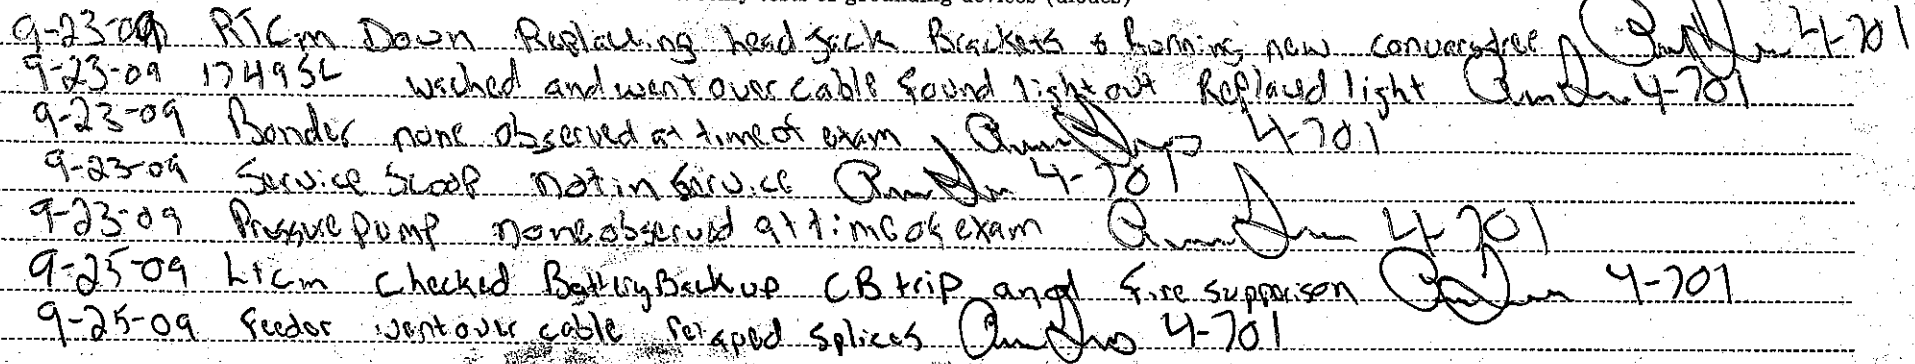 9-23-09 RTCm Down Replacing head Jack Brackets & Running new conveyer 4-701
9-23-09 17495L wached and went over cable found light out Replaced light 4-701
9-23-09 Bonder none observed at time of exam 4-701
9-23-09 Service Scoop not in Service 4-701
9-23-09 Pressure Pump none observed at time of exam 4-701
9-25-09 LTCm Checked Battery Backup CB trip and fire supprison 4-701
9-25-09 Feeder went over cable retaped splices 4-701